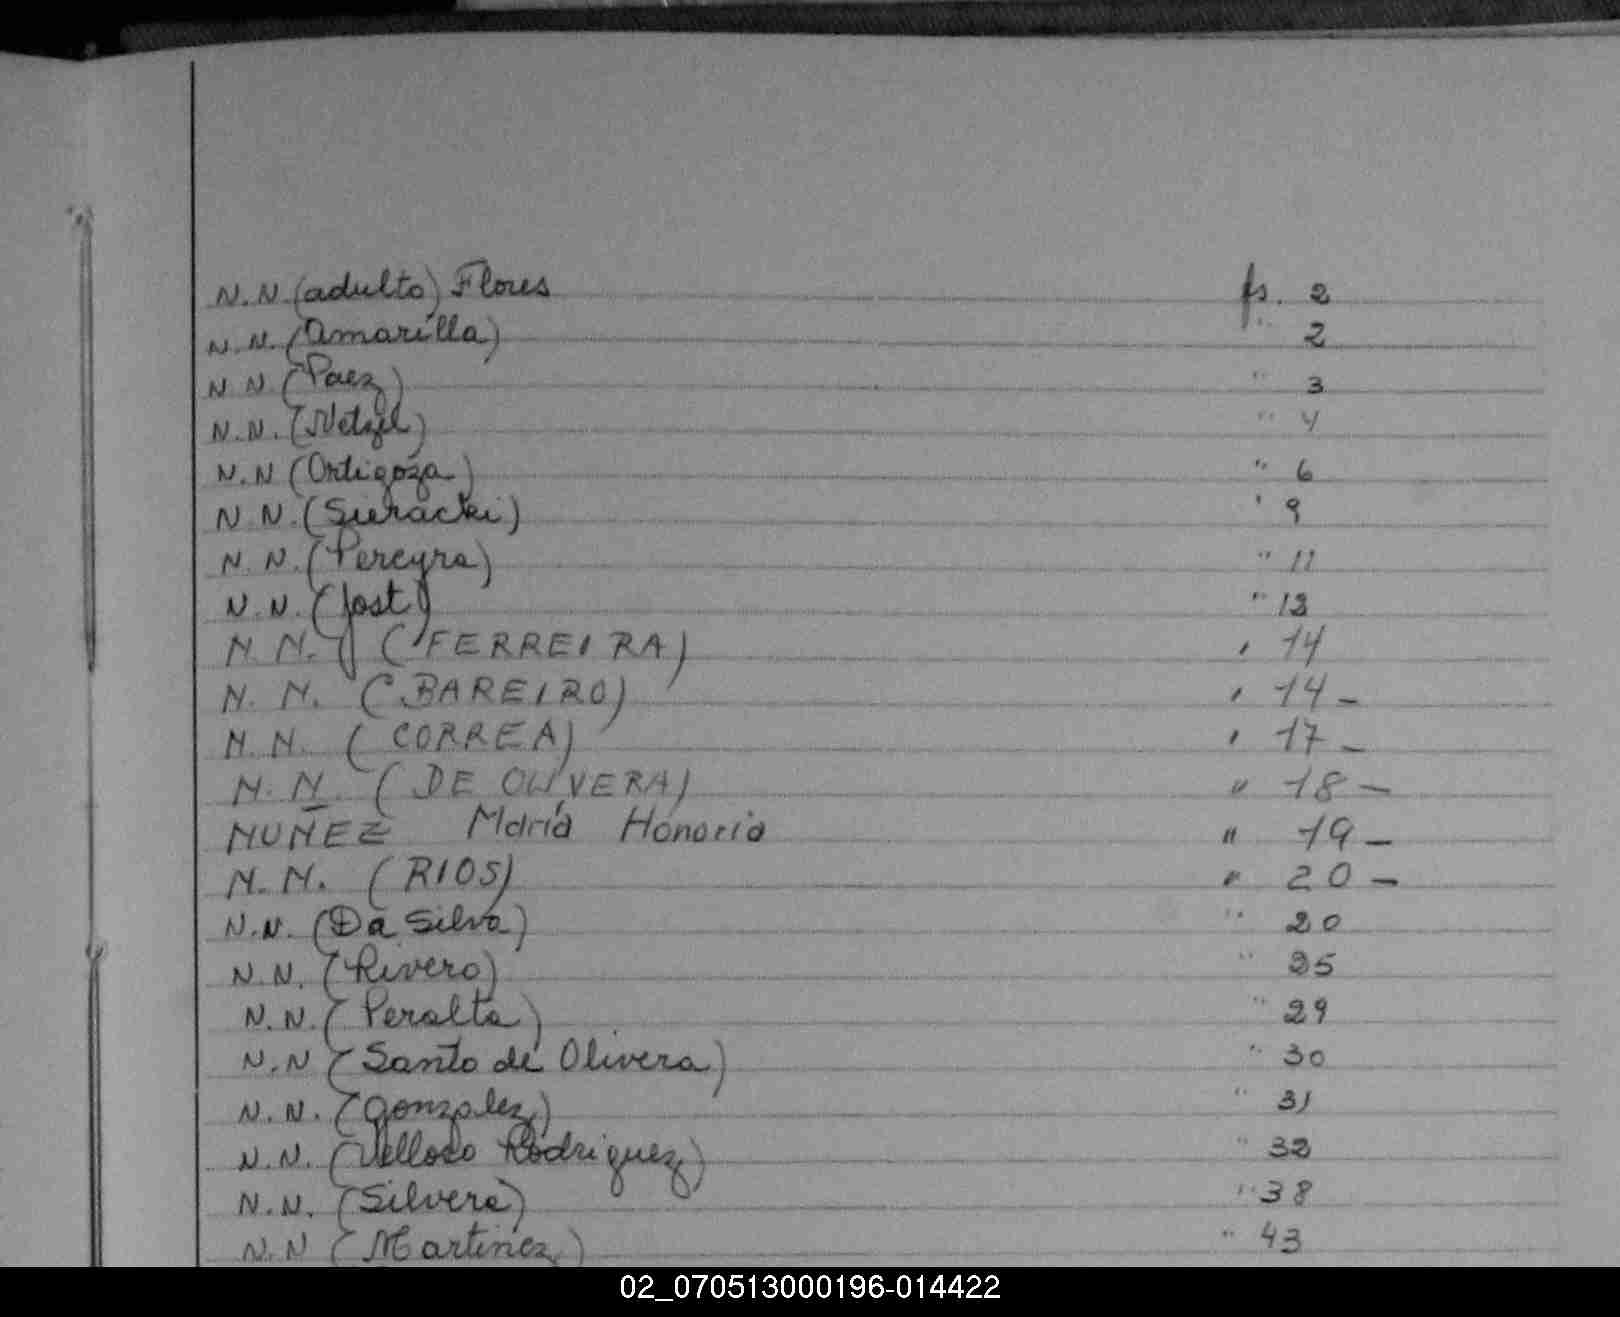 N.N (adulto) Flores fs. 2
N.N. (Amarilla) " 2
N N (Paez) " 3
N.N. (Netzel) " 4
N.N (Ortigoza) " 6
N N. (Sieracki) " 9
N. N. (Pereyra) " 11
N. N. (Jost) " 13
N. N. (FERREIRA) " 14
N. N. (BAREIRO) " 14 -
N. N. (CORREA) " 17 -
N. N. (DE OLIVERA) " 18 -
NUÑEZ María Honoria " 19 -
N. N. (RIOS) " 20 -
N.N. (Da Silva) " 20
N.N. (Rivero) " 25
N.N. (Peralta) " 29
N.N (Santo de Olivera) " 30
N.N. (Gonzalez) " 31
N.N. (Velloso Rodriguez) " 32
N.N. (Silvera) " 38
N.N (Martinez) " 43
02_070513000196-014422